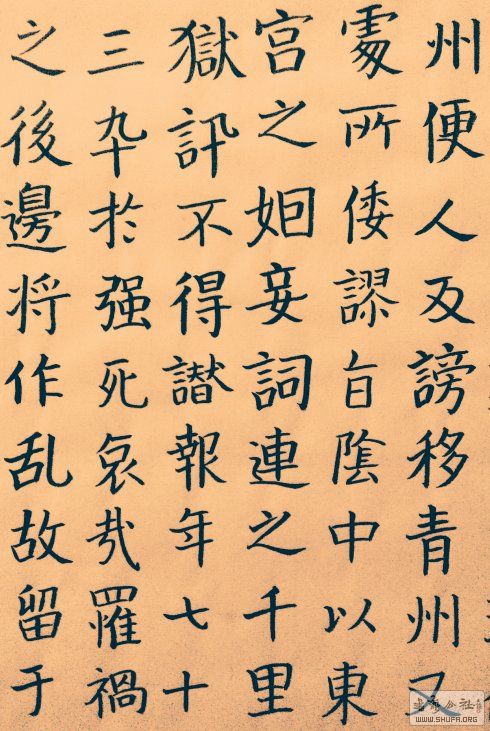 州便人反謗移青州又
處所倭謬旨陰中以東
宮之姻妾詞連之千里
獄訊不得譖報年七十
三卆於强死哀哉罹禍
之後邊将作乱故留于
书法公社
WWW.SHUFA.ORG